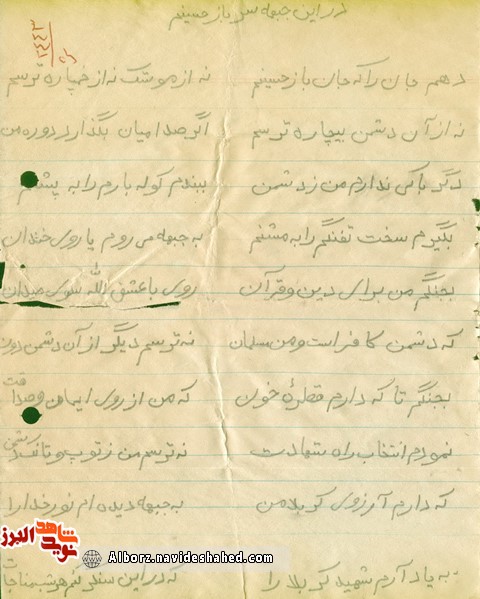 در این جبهه سرباز حسینم
دهم جان را که جان باز حسینم نه از موشک نه از خمپاره ترسم
نه از آن دشمن بیچاره ترسم اگر صدامیان بگذارد دوره من
دگر باکی ندارم من ز دشمن ببندم کوله بارم را به پشتم
بگیرم سخت تفنگم را به مشتم به جبهه می روم با روی خندان
بجنگم من برای دین و قرآن روی با عشق الله سوی میدان
که دشمن کافر است و من مسلمان نه ترسم دیگر از آن دشمن دون
بجنگم تا که دارم قطرهٔ خون که من از روی ایمان و صداقت
نمودم انتخاب راه شهادت نه ترسم من ز توپ و تانک دشمن
که دارم آرزوی کربلا من به جبهه دیده ام نور خدا را
به یاد آرم شهید کربلا را که در این سنگرم هر شب مناجات
شاهد
نوید البرز
Alborz.navideshahed.com